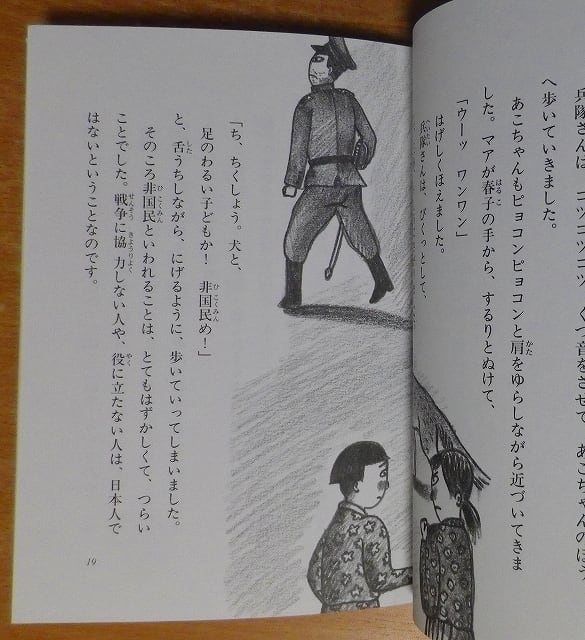 兵隊さんは、コツコツコツ、くつ音をさせて、あこちゃんのほう
へ歩いていきました。
あこちゃんもピョコンピョコンと肩をゆらしながら近づいてきま
した。マアが春子の手から、するりとぬけて、
「ウーッ ワンワン」
はげしくほえました。
兵隊さんは、びくっとして、
「ち、ちくしょう。犬と、
足のわるい子どもか! 非国民め!」
と、舌うちしながら、にげるように、歩いていってしまいました。
そのころ非国民といわれることは、とてもはずかしくて、つらい
ことでした。戦争に協力しない人や、役に立たない人は、日本人で
はないということなのです。
19